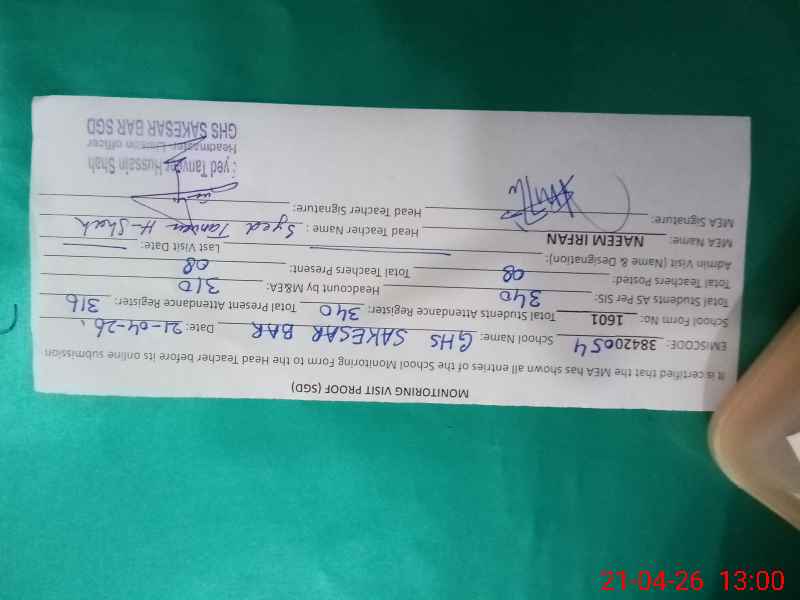 MONITORING VISIT PROOF (SGD)
It is certified that the MEA has shown all entries of the School Monitoring Form to the Head Teacher before its online submission
EMISCODE: 38420054 School Name: GHS SAKESAR BAR Date: 21-04-26.
School Form No: 1601 Total Students Attendance Register: 340 Total Present Attendance Register: 316
Total Students AS Per SIS: 340 Headcount by M&EA: 310
Total Teachers Posted: 08 Total Teachers Present: 08
Admin Visit (Name & Designation): Last Visit Date:
MEA Name: NAEEM IRFAN Head Teacher Name: Syed Tanveer H-Shah
MEA Signature: Head Teacher Signature:
Syed Tanveer Hussain Shah
Headmaster Liaison officer
GHS SAKESAR BAR SGD
21-04-26 13:00